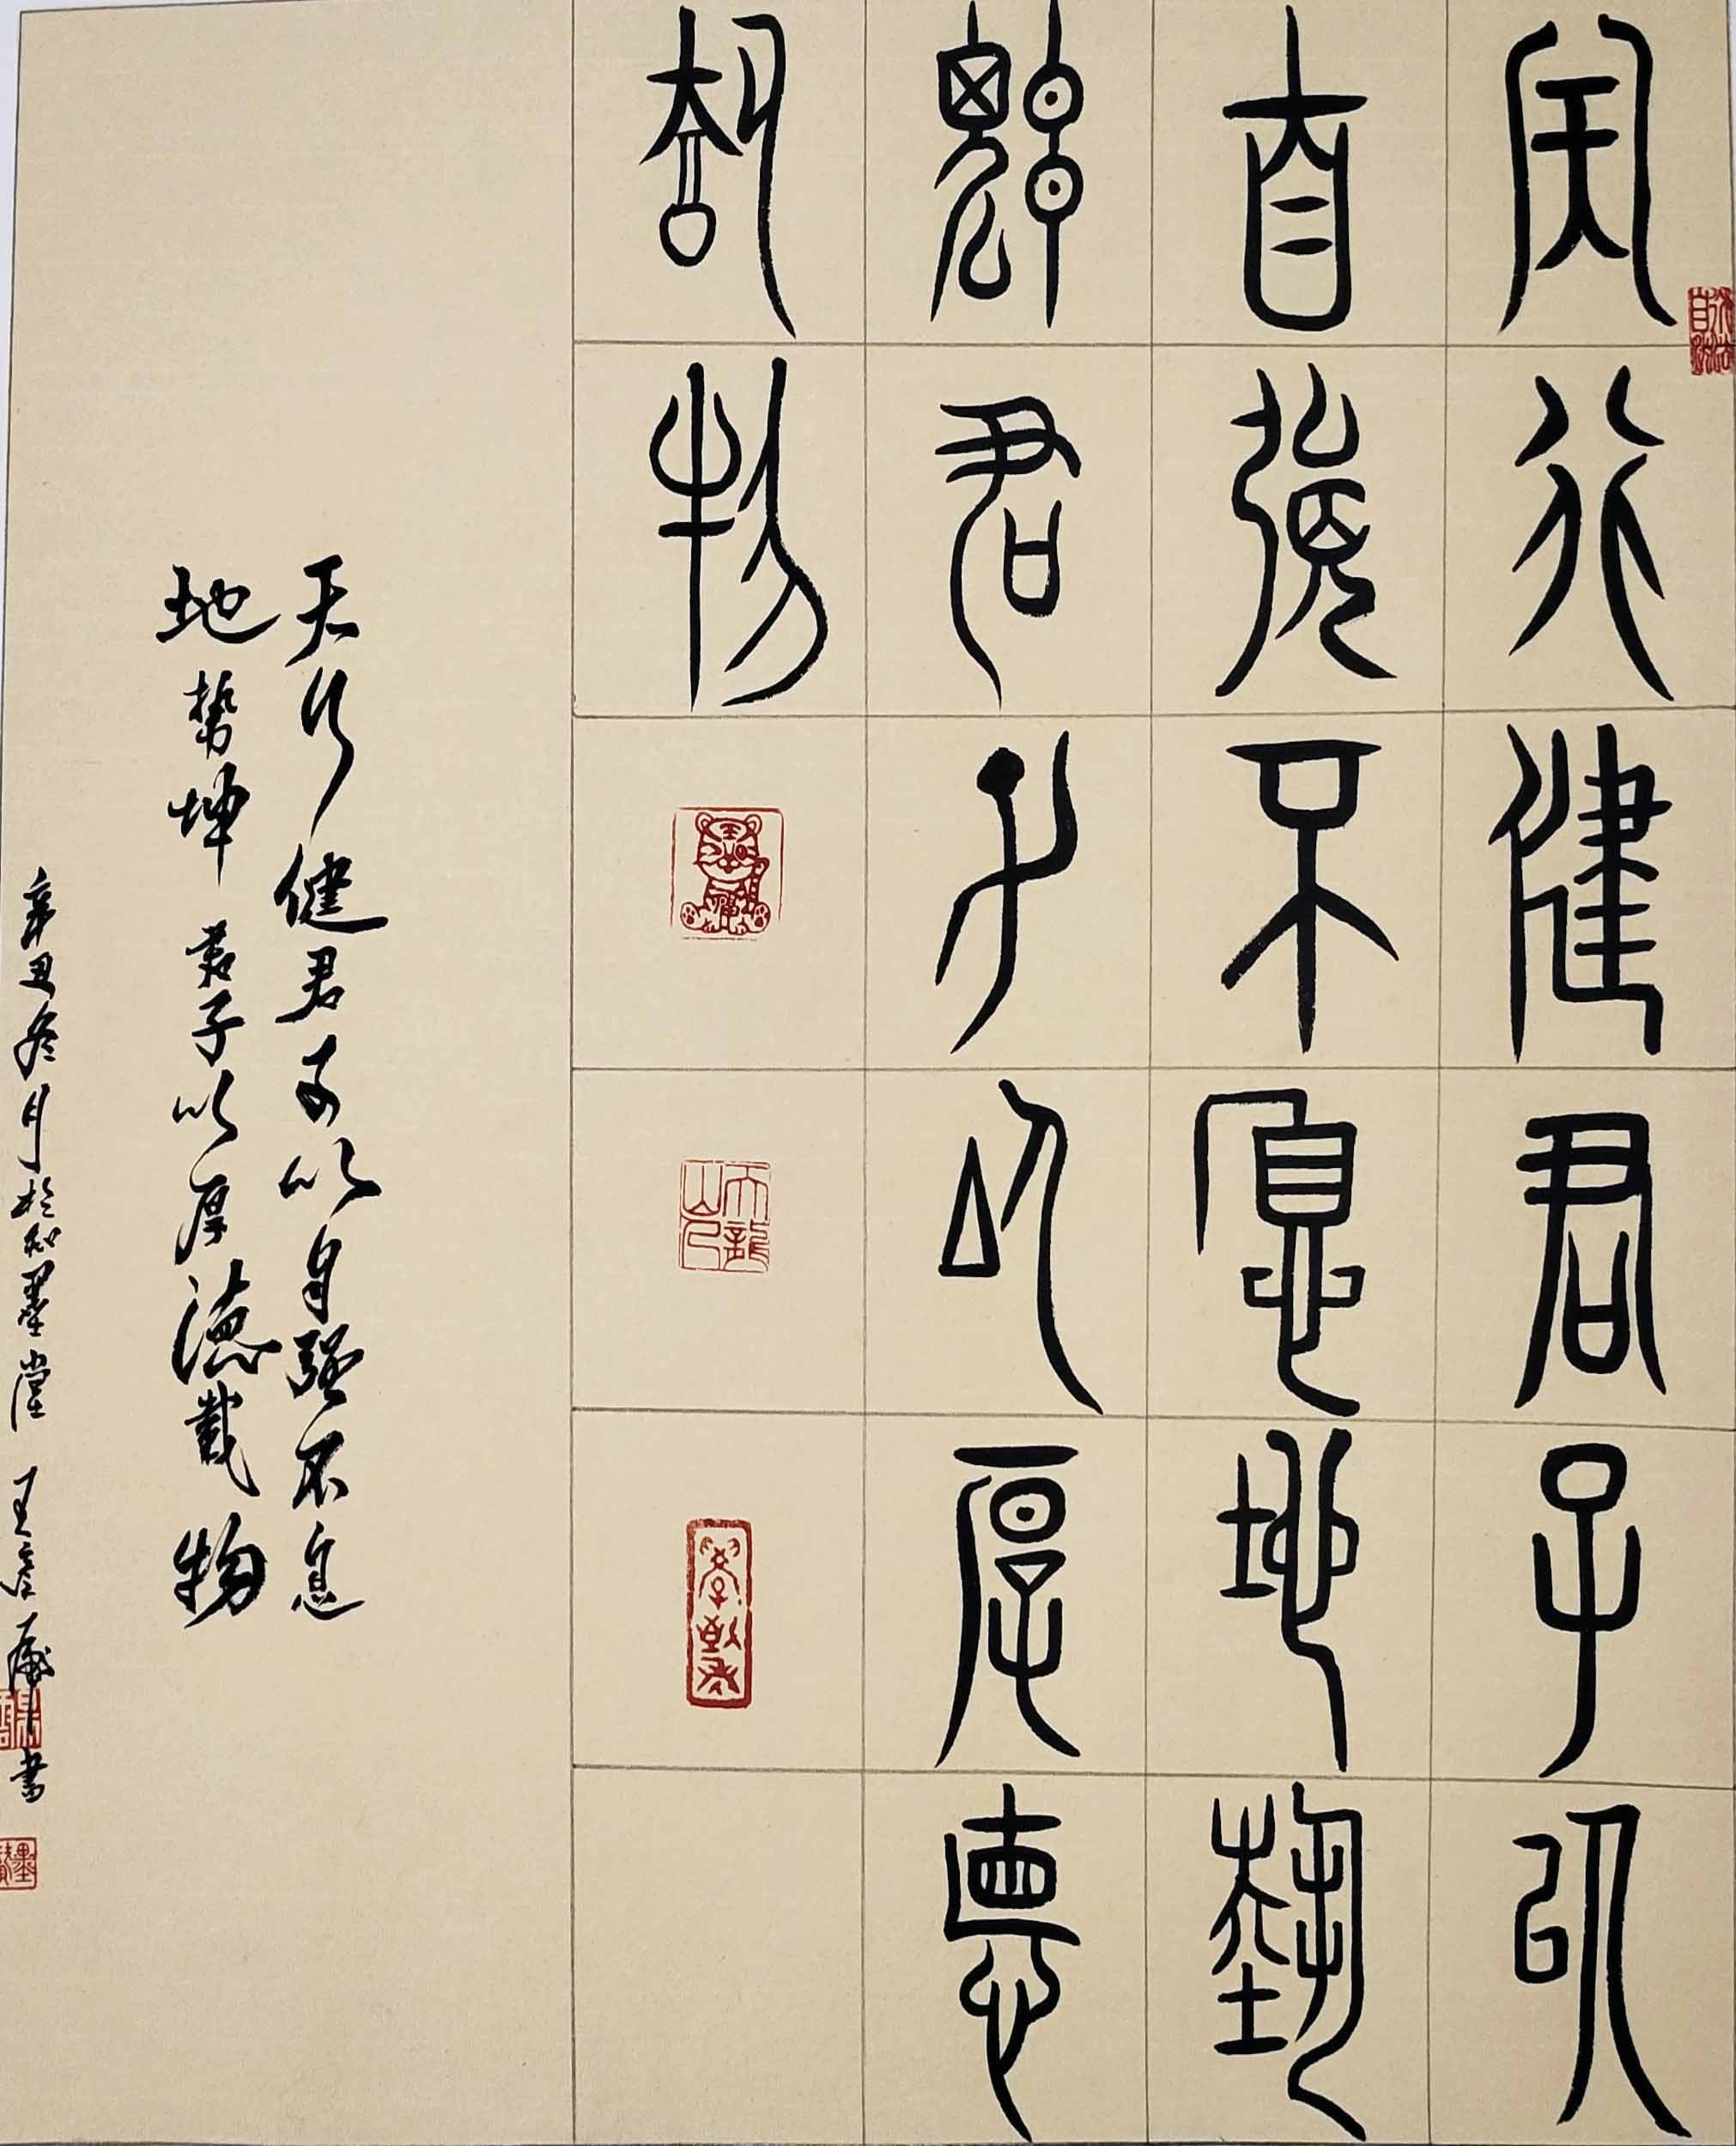 天行健君子以
自强不息地势
坤君子以厚德
载物
天行健君子以自强不息
地势坤君子以厚德载物
辛丑冬月於知墨堂王彦威书